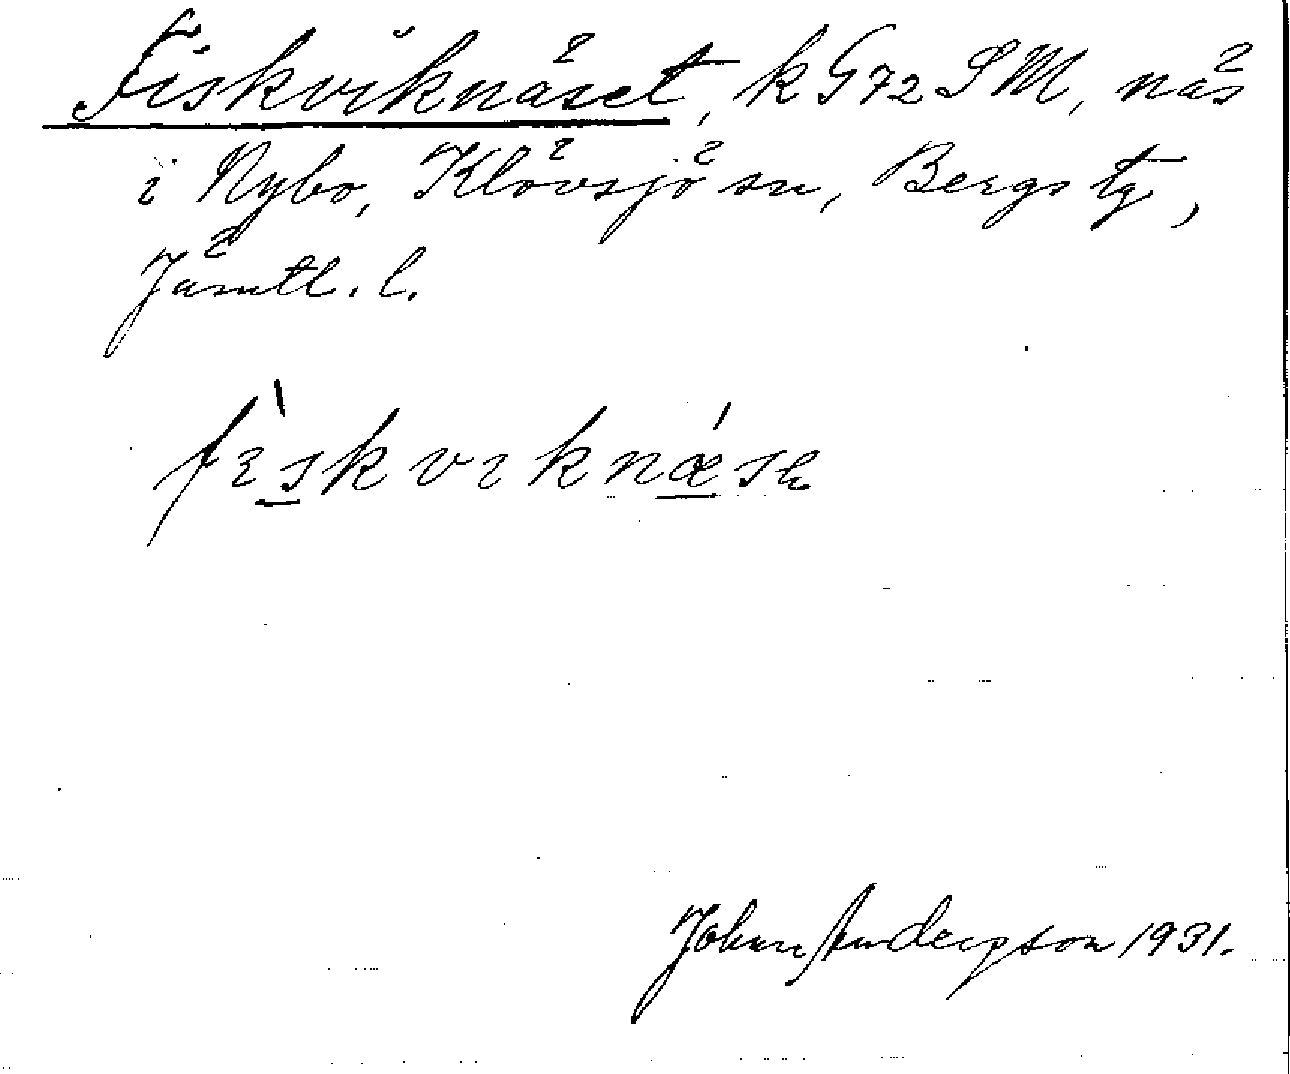 Fiskviknäset, k G72 SM, näs
i Nybo, Klövsjö sn, Bergs tg,
Jämtl. l.
fı̀skvıknǽsə
Johan Andersson 1931.